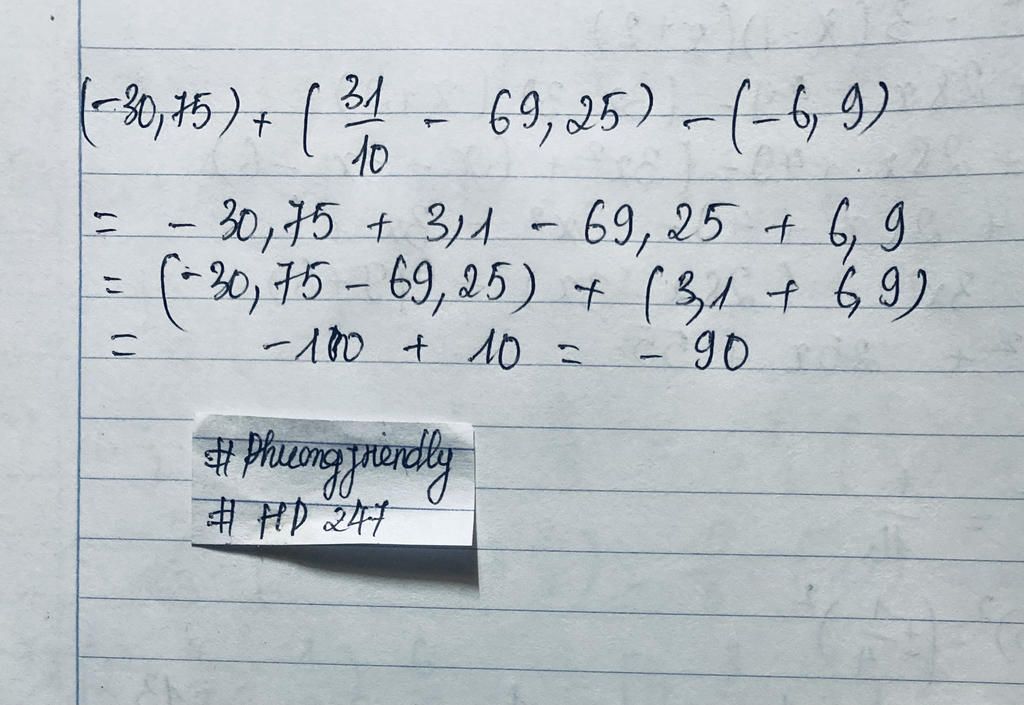 (-30,75) + (31/10 - 69,25) - (-6,9)
= - 30,75 + 3,1 - 69,25 + 6,9
= (-30,75 - 69,25) + (3,1 + 6,9)
= -100 + 10 = - 90
# Phuongfriendly
# HD 247